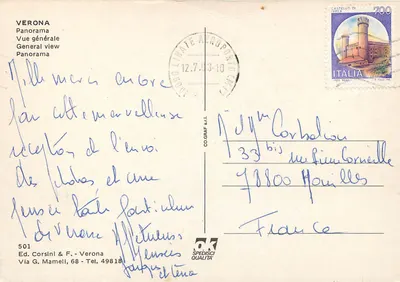 VERONA
Panorama
Vue générale
General view
Panorama
Mille mercis encore
pour cette merveilleuse
réception et l'envoi
des photos, et une
pensée toute particulière
de Verone
et
501
Ed. Corsini & F. - Verona
Via G. Mameli, 68 - Tel. 49818
CO.GRAF s.r.l.
OK
SPEDISCI
QUALITÀ
12.7.
-10
700
ITALIA
M et Mme
33 bis rue Pierre Corneille
78800 Houilles
France